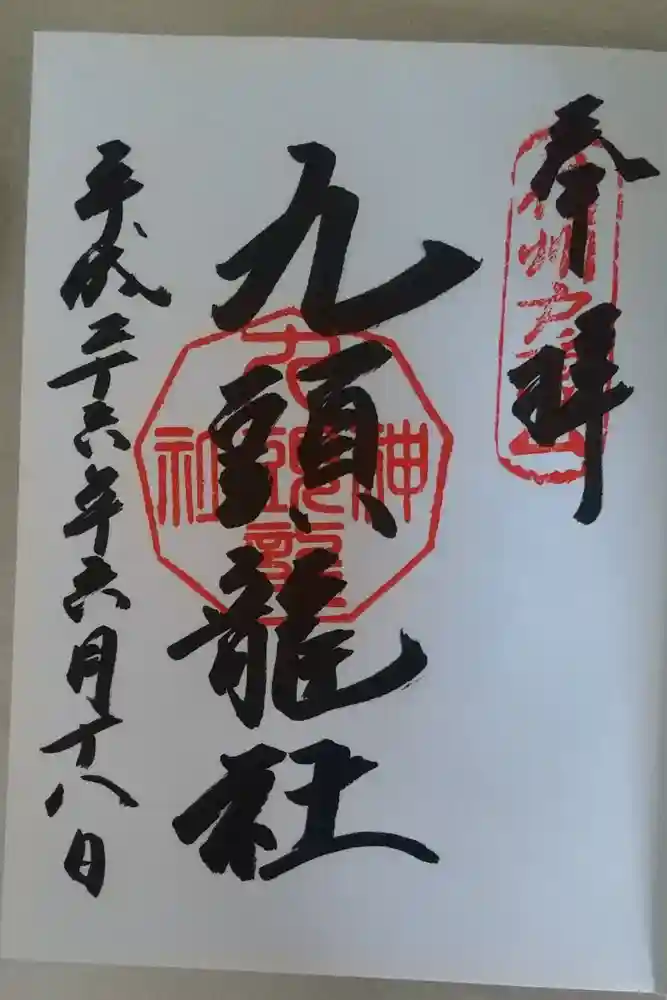 奉拝
信州戸隠山
九頭龍社
九頭龍神社
平成二十六年六月十八日